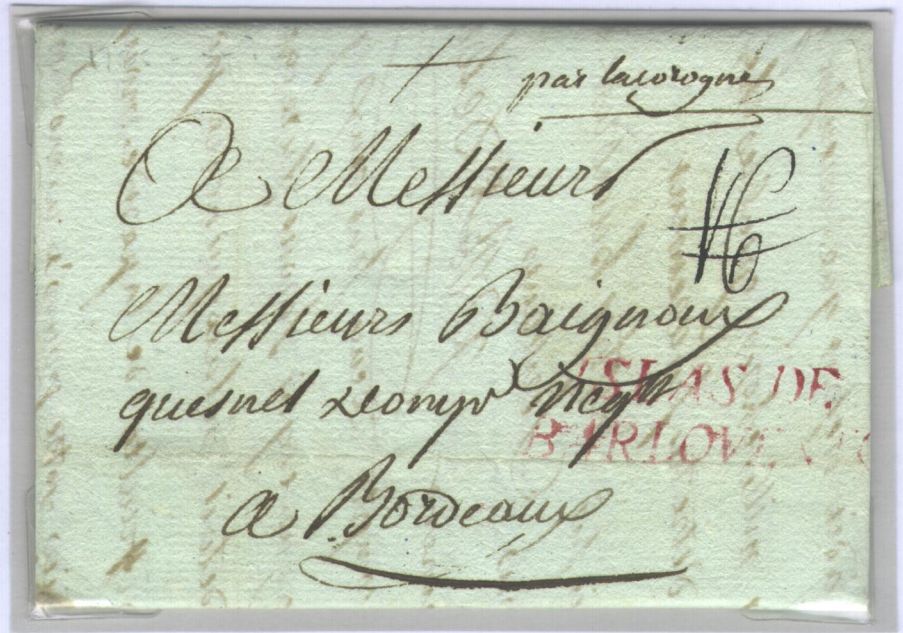 par lacorogne
A Messieurs
16
Messieurs Baignoux
quesnel & Comp^e Neg^ts
YSLAS DE
BARLOVENTO
a Bordeaux